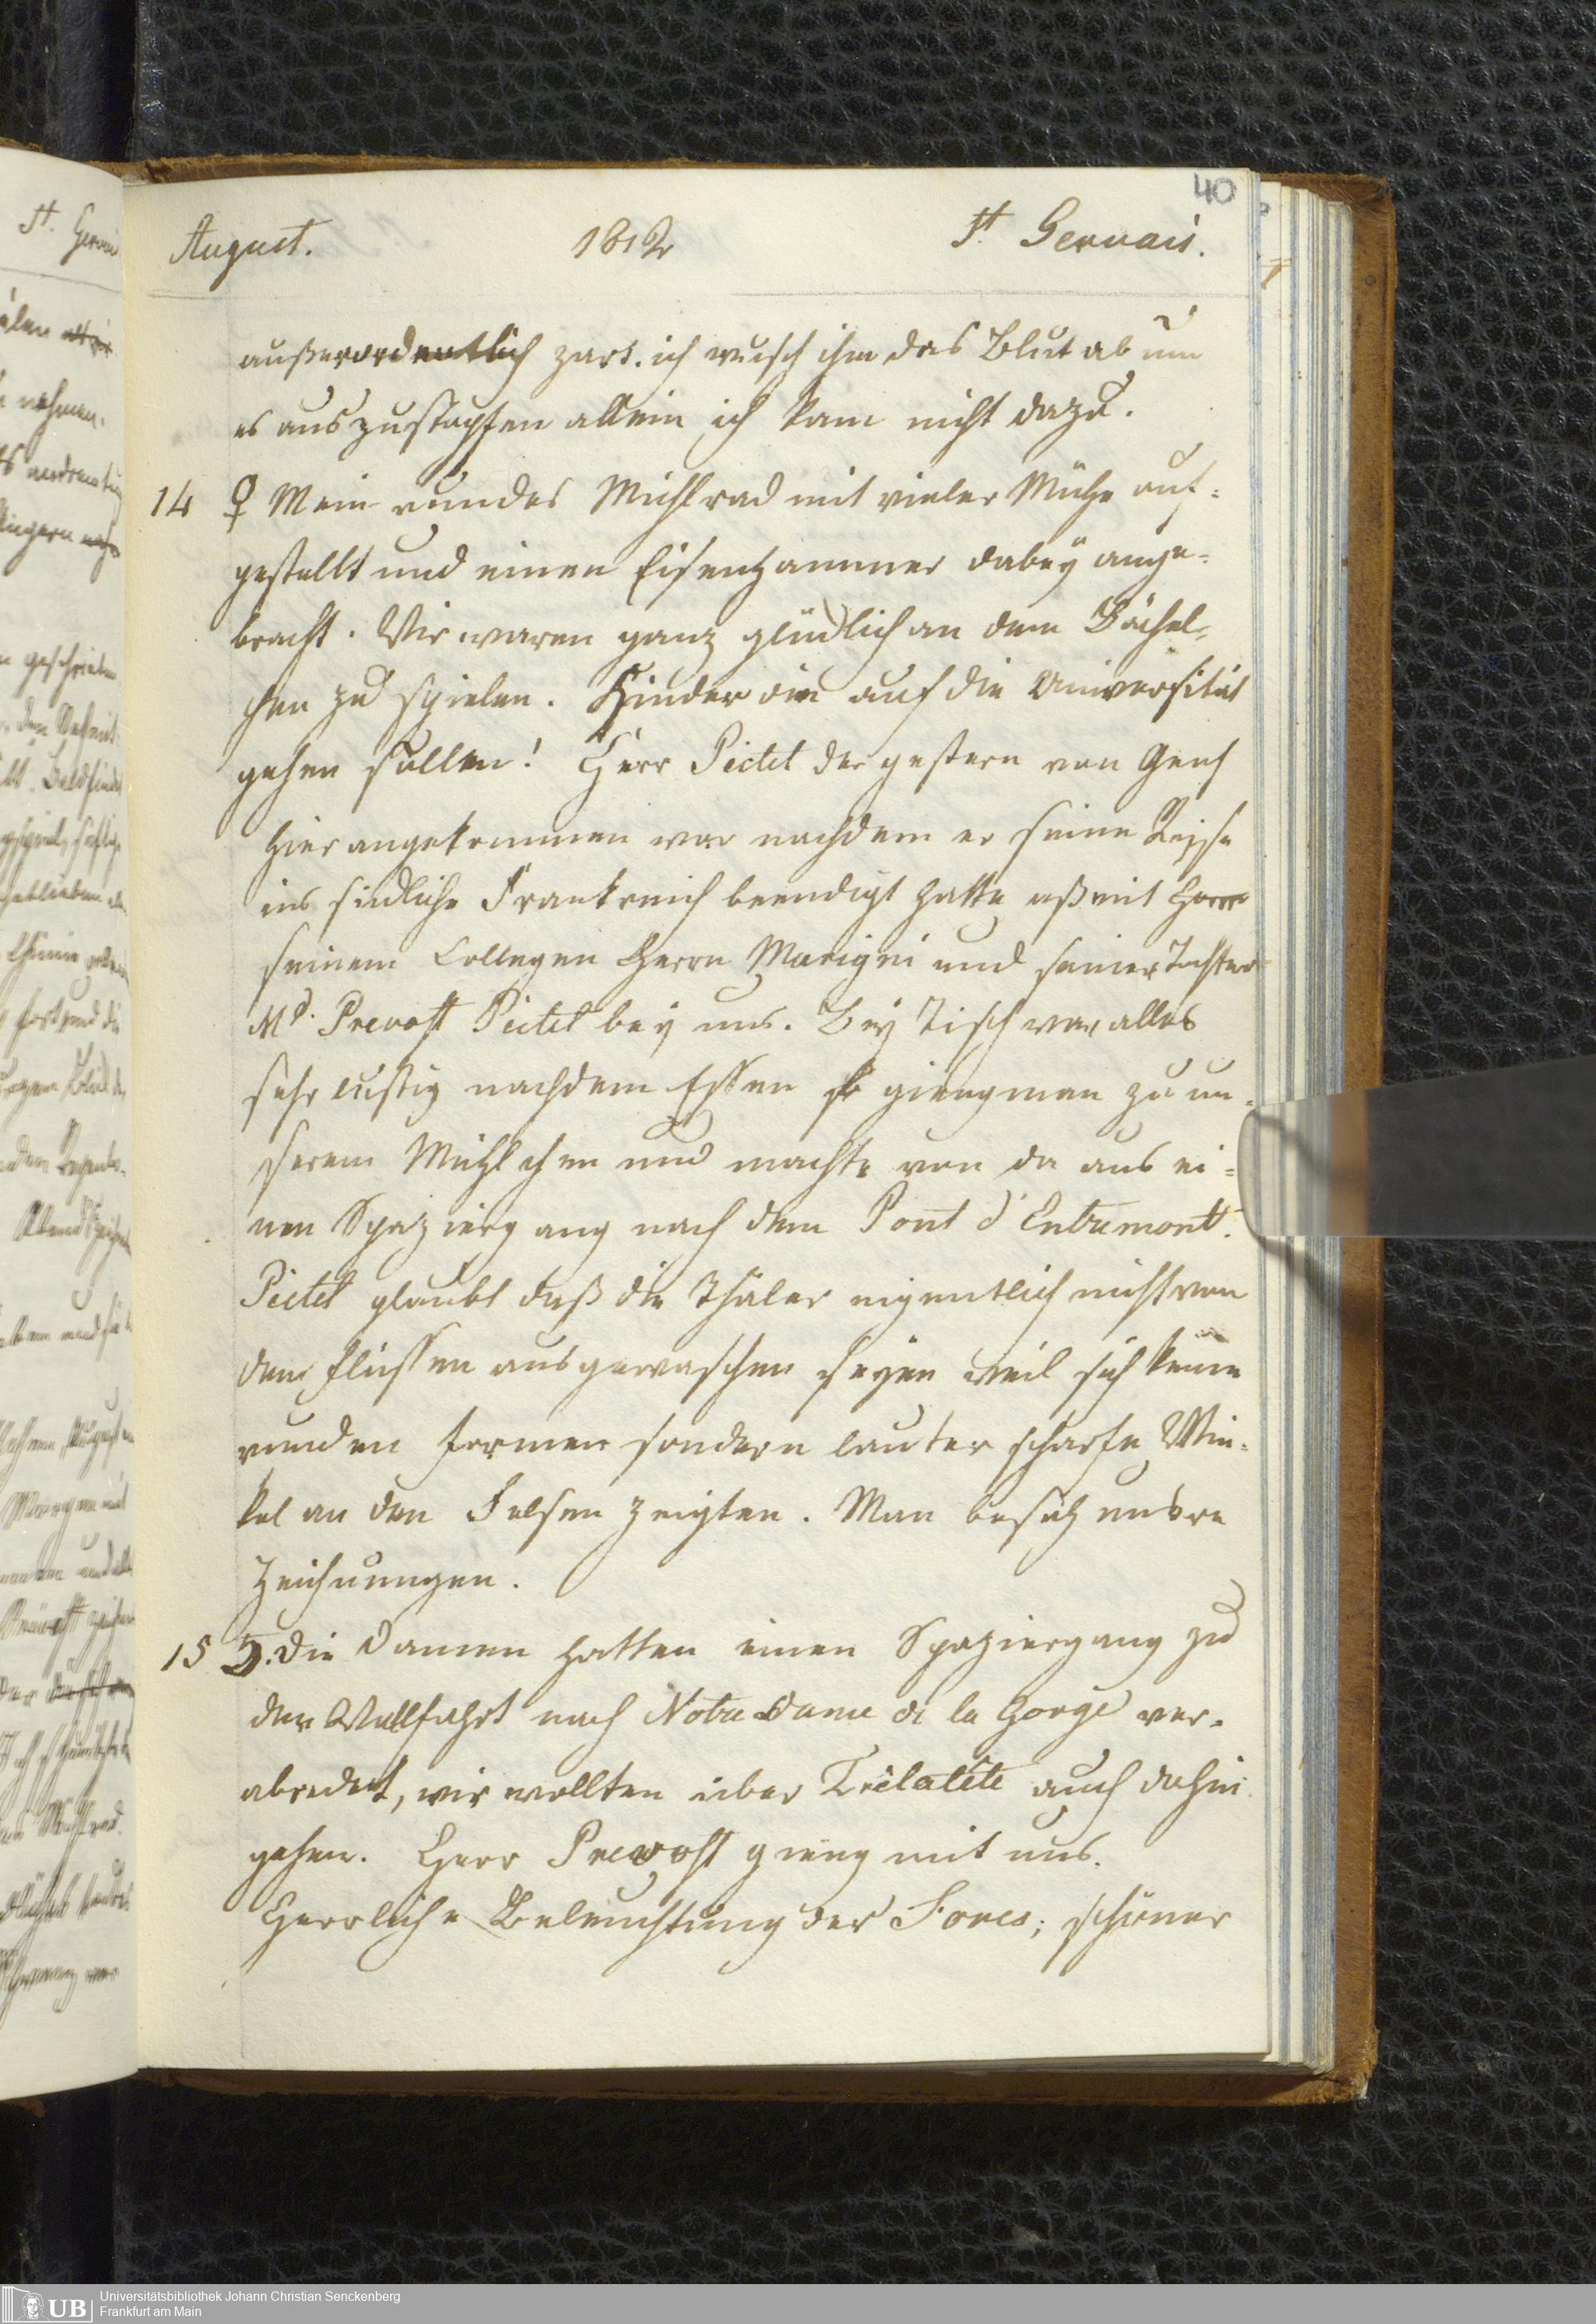 40
August. 1812 St. Gervais.
außerordentlich zart. ich wusch ihm das Blut ab um
es auszustopfen allein ich kam nicht dazu.
14 ♀ Mein rundes Mühlrad mit vieler Mühe auf-
gestellt und einen Eisenhammer dabey ange-
bracht. Wir waren ganz glücklich an dem Bächel-
chen zu spielen. Kinder die auf die Universität
gehen sollen! Herr Pictet der gestern von Genf
hier angekommen war nachdem er seine Reise
ins südliche Frankreich beendigt hatte aß mit Herrn
seinem Collegen Herrn Marigni und seiner Tochter
Md. Prevost Pictet bey uns. Bey Tisch war alles
sehr lustig nachdem Essen gieng man zu un-
serem Mühlchen und machte von da aus ei-
nen Spaziergang nach dem Pont d'Entremont.
Pictet glaubt daß die Thäler eigentlich nicht von
den Flüssen ausgewaschen seyen weil sich keine
runden Formen sondern lauter scharfe Win-
kel an den Felsen zeigten. Man besah unsre
Zeichnungen.
15 ♄. Die Damen hatten einen Spaziergang zu
der Wallfahrt nach Notre Dame de la Gorge ver-
abredet, wir wollten über Trélatête auch dahin
gehen. Herr Prevost gieng mit uns.
Herrliche Beleuchtung der Fores; schöner
Universitätsbibliothek Johann Christian Senckenberg
UB Frankfurt am Main